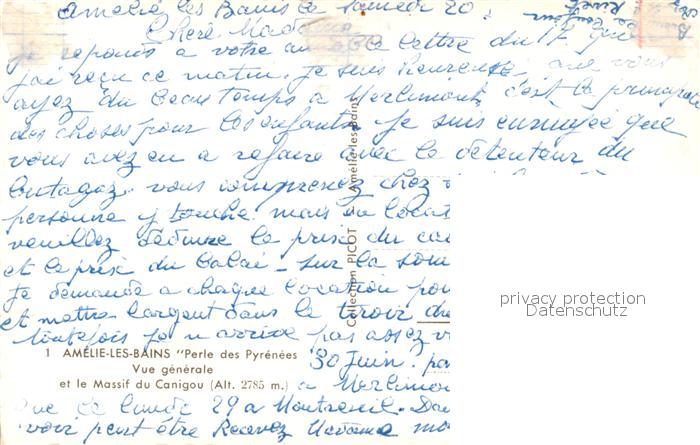 Amélie les Bains le Samedi 20
Chère Mad
je réponds a votre lettre du 17 que
j'ai reçu ce matin. je suis heureuse, que vous
ayez du beau temps a Merlimont, c'est le principal
des choses pour les enfants. je suis ennuyée que
vous avez eu a refaire avec le détenteur du
butagaz. vous comprenez chez
personne y touche. mais
veuillez déduire le prix du
et le prix du balai - sur la som
je demande a chaque location
et mettre l'argent dans le tiroir
toutefois je n'arrive pas assez
30 Juin.
a Merlimon
que ce lundi 29 a Montreuil.
voir peut être Recevez Madame
1 AMÉLIE-LES-BAINS "Perle des Pyrénées
Vue générale
et le Massif du Canigou (Alt. 2785 m.)
Collection PICOT Amélie-les-Bains
privacy protection
Datenschutz